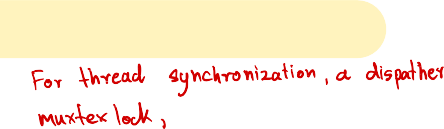 For thread synchronization, a dispather
muxtex lock,